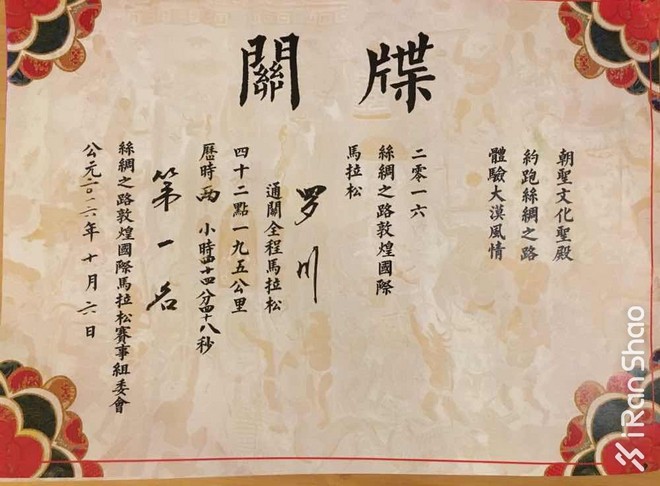 牒關
朝聖文化聖殿
約跑絲綢之路
體驗大漠風情
二零一六
絲綢之路敦煌國際
馬拉松
罗川
通關全程馬拉松
四十二點一九五公里
歷時两小時四十四分四十八秒
第一名
絲綢之路敦煌國際馬拉松賽事組委會
公元二〇一六年十月六日
iRanShao